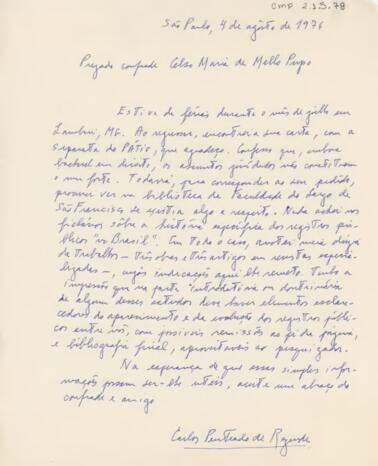 CMP 2.1.3.78
São Paulo, 4 de agôsto de 1976
Prezado confrade Celso Maria de Mello Pupo
Estive de férias durante o mês de julho em
Lambari, MG. Ao regressar, encontrei a sua carta, com a
separata do PATIO, que agradeço. Confesso que, embora
bacharel em direito, os assuntos jurídicos não constituem
o meu forte. Todavia, para corresponder ao seu pedido,
procurei ver na biblioteca da Faculdade do Largo de
São Francisco se existia algo a respeito. Nada achei nos
fichários sôbre a história específica dos registros pú-
blicos "no Brasil". Em todo o caso, anotei meia dúzia
de trabalhos — três obras e três artigos em revistas especia-
lizadas —, cujas indicações aqui lhe remeto. Tenho a
impressão que na parte introdutória ou doutrinária
de alguns desses estudos deve haver elementos esclare-
cedores do aparecimento e da evolução dos registros públi-
cos entre nós, com possíveis remissões ao pé da página,
e bibliografia final, aproveitáveis ao pesquisador.
Na esperança de que essas simples infor-
mações possam ser-lhe úteis, aceite um abraço do
confrade e amigo
Carlos Penteado de Rezende